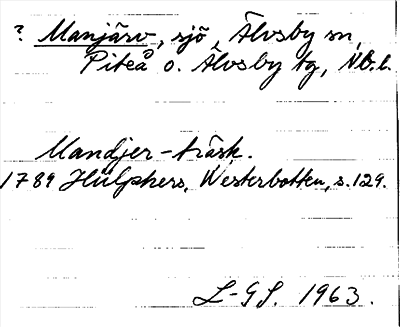 ? Manjärv, sjö, Älvsby sn,
Piteå o. Älvsby tg, Nb.l.
Mandjer-träsk.
1789 Hülphers, Westerbotten, s. 129.
L-GS. 1963.